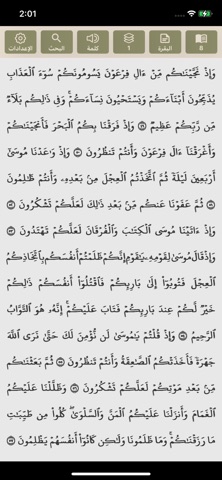 2:01
الإعدادات
البحث
كلمة
1
البقرة
8
وَإِذْ نَجَّيْنَٰكُم مِّنْ ءَالِ فِرْعَوْنَ يَسُومُونَكُمْ سُوٓءَ ٱلْعَذَابِ
يُذَبِّحُونَ أَبْنَآءَكُمْ وَيَسْتَحْيُونَ نِسَآءَكُمْ ۚ وَفِى ذَٰلِكُم بَلَآءٌ
مِّن رَّبِّكُمْ عَظِيمٌ ۝ وَإِذْ فَرَقْنَا بِكُمُ ٱلْبَحْرَ فَأَنجَيْنَٰكُمْ
وَأَغْرَقْنَآ ءَالَ فِرْعَوْنَ وَأَنتُمْ تَنظُرُونَ ۝ وَإِذْ وَٰعَدْنَا مُوسَىٰٓ
أَرْبَعِينَ لَيْلَةً ثُمَّ ٱتَّخَذْتُمُ ٱلْعِجْلَ مِنۢ بَعْدِهِۦ وَأَنتُمْ ظَٰلِمُونَ
۝ ثُمَّ عَفَوْنَا عَنكُم مِّنۢ بَعْدِ ذَٰلِكَ لَعَلَّكُمْ تَشْكُرُونَ ۝
وَإِذْ ءَاتَيْنَا مُوسَى ٱلْكِتَٰبَ وَٱلْفُرْقَانَ لَعَلَّكُمْ تَهْتَدُونَ ۝
وَإِذْ قَالَ مُوسَىٰ لِقَوْمِهِۦ يَٰقَوْمِ إِنَّكُمْ ظَلَمْتُمْ أَنفُسَكُم بِٱتِّخَاذِكُمُ
ٱلْعِجْلَ فَتُوبُوٓا۟ إِلَىٰ بَارِئِكُمْ فَٱقْتُلُوٓا۟ أَنفُسَكُمْ ذَٰلِكُمْ
خَيْرٌ لَّكُمْ عِندَ بَارِئِكُمْ فَتَابَ عَلَيْكُمْ ۚ إِنَّهُۥ هُوَ ٱلتَّوَّابُ
ٱلرَّحِيمُ ۝ وَإِذْ قُلْتُمْ يَٰمُوسَىٰ لَن نُّؤْمِنَ لَكَ حَتَّىٰ نَرَى ٱللَّهَ
جَهْرَةً فَأَخَذَتْكُمُ ٱلصَّٰعِقَةُ وَأَنتُمْ تَنظُرُونَ ۝ ثُمَّ بَعَثْنَٰكُم
مِّنۢ بَعْدِ مَوْتِكُمْ لَعَلَّكُمْ تَشْكُرُونَ ۝ وَظَلَّلْنَا عَلَيْكُمُ
ٱلْغَمَامَ وَأَنزَلْنَا عَلَيْكُمُ ٱلْمَنَّ وَٱلسَّلْوَىٰ ۖ كُلُوا۟ مِن طَيِّبَٰتِ
مَا رَزَقْنَٰكُمْ ۖ وَمَا ظَلَمُونَا وَلَٰكِن كَانُوٓا۟ أَنفُسَهُمْ يَظْلِمُونَ ۝